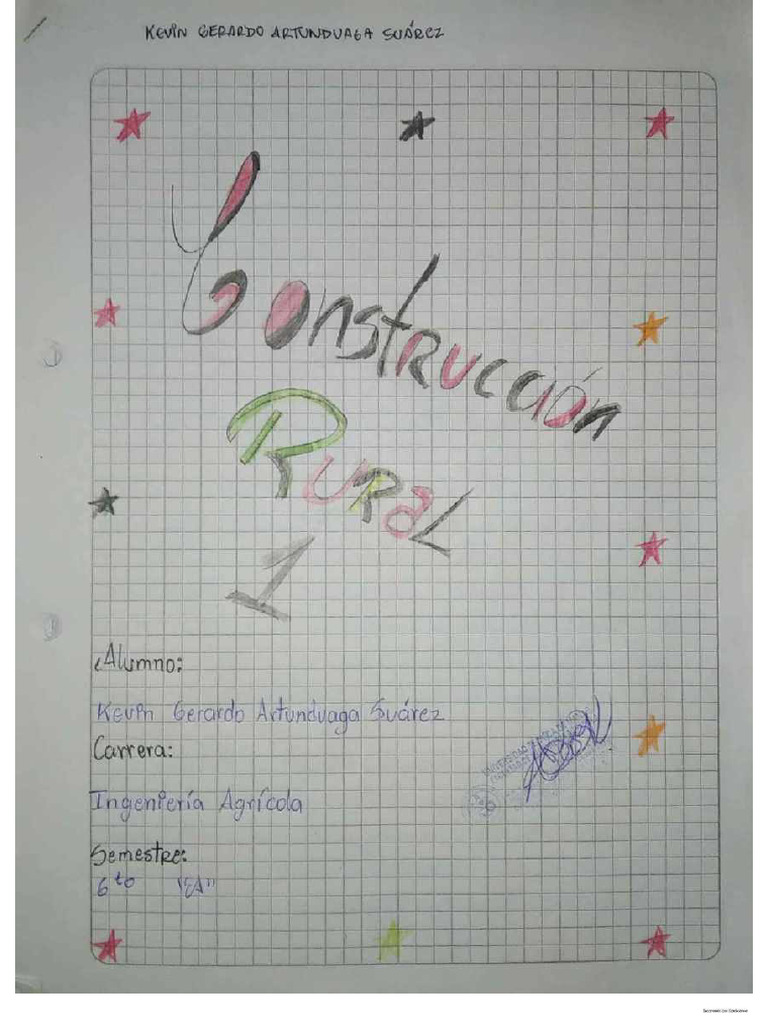 KEVIN GERARDO ARTUNDUAGA SUÁREZ
Construcción
Rural
1
Alumno:
Kevin Gerardo Artunduaga Suárez
Carrera:
Ingeniería Agrícola
Semestre:
6to "EA"